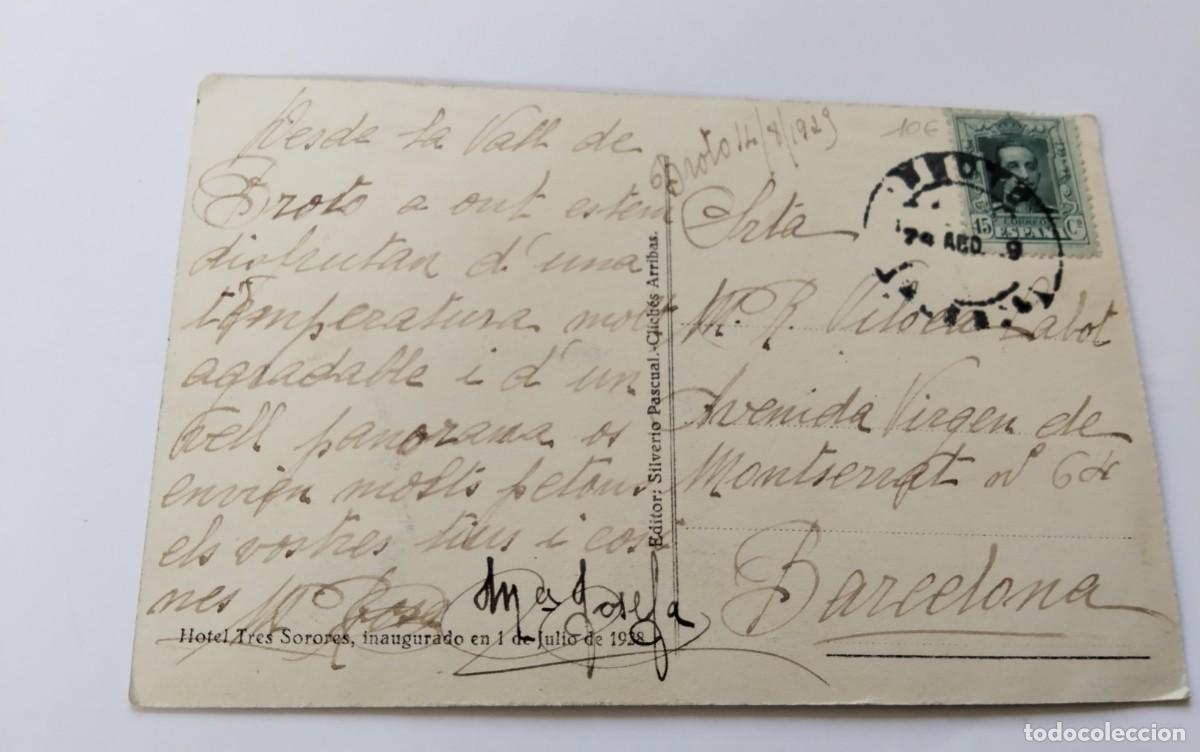 Desde la Vall de
Broto a ont estem
disfrutan d'una
temperatura molt
agradable i d'un
vell panorama os
envien molts petons
els vostres tius i cosi
nes Mª Rosa
Mª Josefa
Hotel Tres Sorores, inaugurado en 1 de Julio de 1928
Editor: Silverio Pascual.-Clichés Arribas.
Broto 14/8/1929
10€
CORREOS
ESPAÑA
15 Cs
AGO
Srta
M. R. Labot
Avenida Virgen de
Montserrat nº
Barcelona
todocoleccion